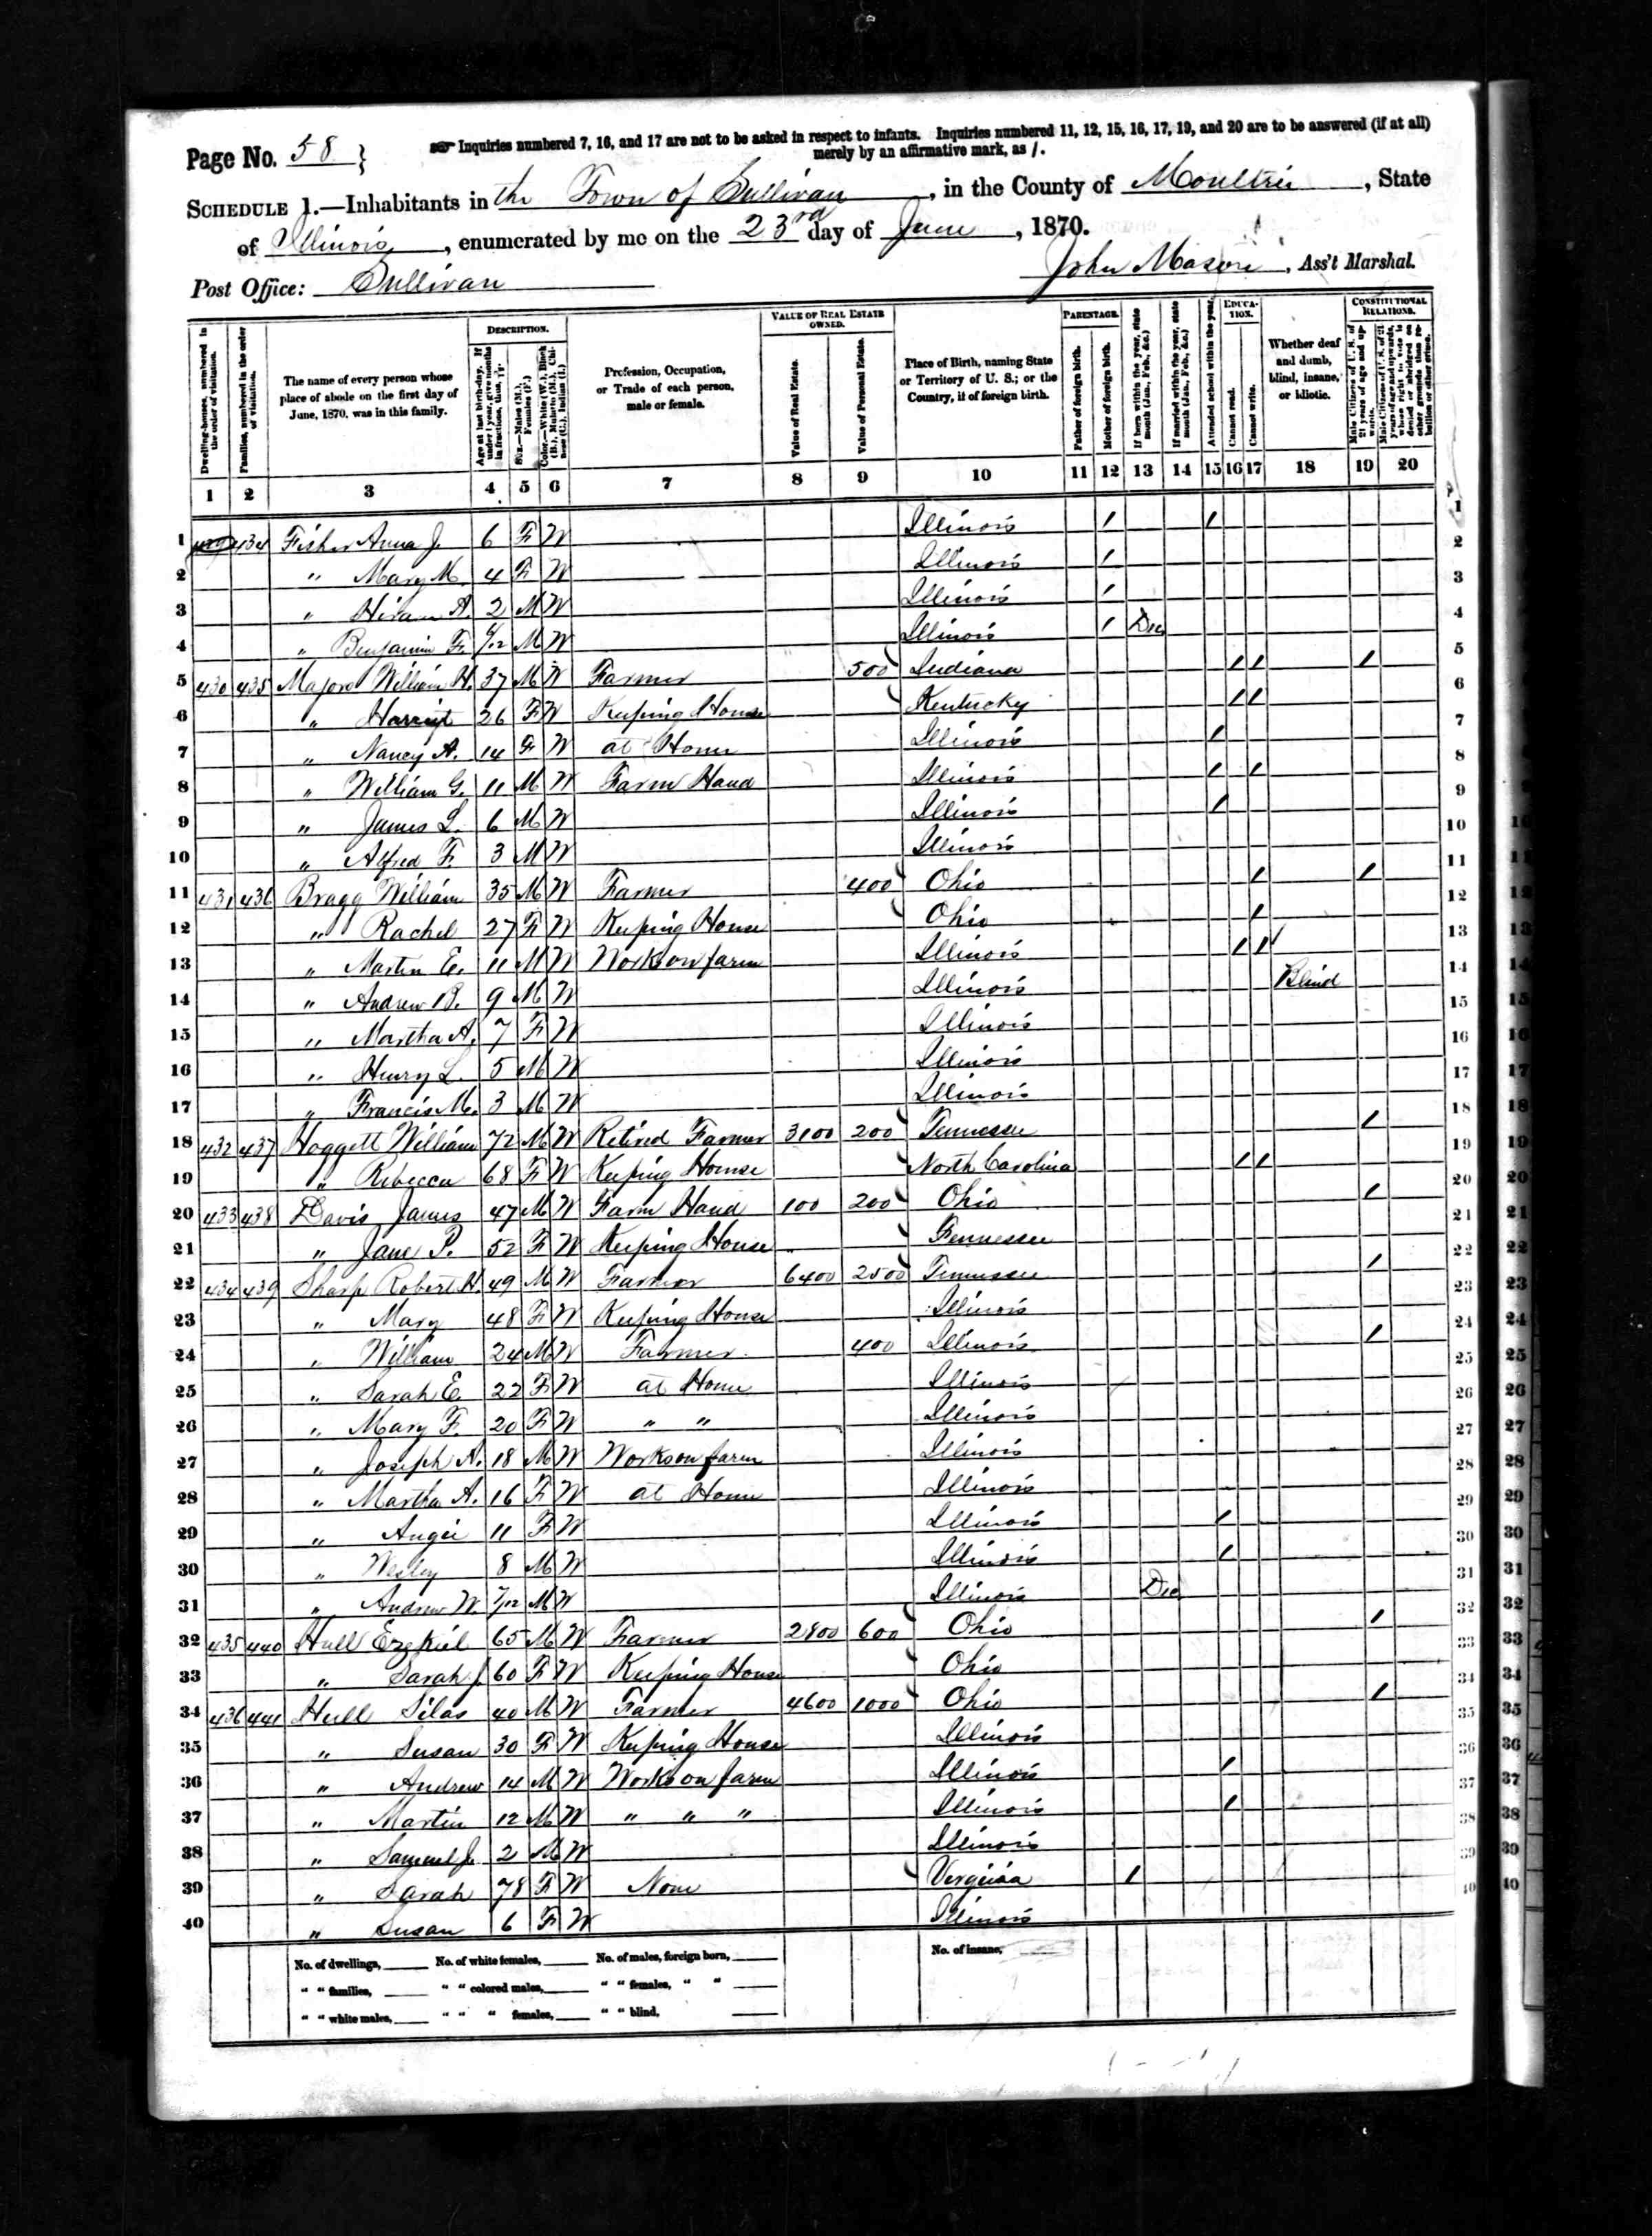 Page No. 58 } Inquiries numbered 7, 16, and 17 are not to be asked in respect to infants. Inquiries numbered 11, 12, 15, 16, 17, 19, and 20 are to be answered (if at all)
merely by an affirmative mark, as /.
SCHEDULE 1.—Inhabitants in the Town of Sullivan, in the County of Moultrie, State
of Illinois, enumerated by me on the 23rd day of June, 1870.
Post Office: Sullivan John Mason, Ass't Marshal.
Dwelling-houses, numbered in the order of visitation.
Families, numbered in the order of visitation.
The name of every person whose place of abode on the first day of June, 1870, was in this family.
DESCRIPTION.
Age at last birth-day. If under 1 year, give months in fractions, thus, 3/12
Sex.—Males (M.), Females (F.)
Color.—White (W.), Black (B.), Mulatto (M.), Chinese (C.), Indian (I.)
Profession, Occupation, or Trade of each person, male or female.
VALUE OF REAL ESTATE OWNED.
Value of Real Estate.
Value of Personal Estate.
Place of Birth, naming State or Territory of U. S.; or the Country, if of foreign birth.
PARENTAGE.
Father of foreign birth.
Mother of foreign birth.
If born within the year, state month (Jan., Feb., &c.)
If married within the year, state month (Jan., Feb., &c.)
Attended school within the year.
EDUCATION.
Cannot read.
Cannot write.
Whether deaf and dumb, blind, insane, or idiotic.
CONSTITUTIONAL RELATIONS.
Male Citizens of U. S. of 21 years of age and upwards.
Male Citizens of U. S. of 21 years of age and upwards, whose right to vote is denied or abridged on other grounds than rebellion or other crime.
1 2 3 4 5 6 7 8 9 10 11 12 13 14 15 16 17 18 19 20
1 434 Fisher Anna J. 6 F W Illinois / / 1
2 " Mary M. 4 F W Illinois / 2
3 " Hiram A. 2 M W Illinois / 3
4 " Benjamin F. 6/12 M W Illinois / Dec 4
5 430 435 Majors William H. 37 M W Farmer 500 Indiana / / / 5
6 " Harriet 26 F W Keeping House Kentucky / / 6
7 " Nancy A. 14 F W at Home Illinois / 7
8 " William G. 11 M W Farm Hand Illinois / / 8
9 " James L. 6 M W Illinois / 9
10 " Alfred F. 3 M W Illinois 10
11 431 436 Bragg William 35 M W Farmer 400 Ohio / / 11
12 " Rachel 27 F W Keeping House Ohio / 12
13 " Martin E. 11 M W Works on farm Illinois / / 13
14 " Andrew B. 9 M W Illinois Blind 14
15 " Martha A. 7 F W Illinois 15
16 " Henry L. 5 M W Illinois 16
17 " Francis M. 3 M W Illinois 17
18 432 437 Hoggett William 72 M W Retired Farmer 3100 200 Tennessee / 18
19 " Rebecca 68 F W Keeping House North Carolina / / 19
20 433 438 Davis James 47 M W Farm Hand 100 200 Ohio / 20
21 " Jane P. 52 F W Keeping House Tennessee 21
22 434 439 Sharp Robert H. 49 M W Farmer 6400 2500 Tennessee / 22
23 " Mary 48 F W Keeping House Illinois 23
24 " William 24 M W Farmer 400 Illinois / 24
25 " Sarah E. 22 F W at Home Illinois 25
26 " Mary F. 20 F W " " Illinois 26
27 " Joseph A. 18 M W Works on farm Illinois 27
28 " Martha A. 16 F W at Home Illinois 28
29 " Angie 11 F W Illinois / 29
30 " Wesley 8 M W Illinois / 30
31 " Andrew W. 7/12 M W Illinois Dec 31
32 435 440 Hull Ezekiel 65 M W Farmer 2800 600 Ohio / 32
33 " Sarah J. 60 F W Keeping House Ohio 33
34 436 441 Hull Silas 40 M W Farmer 4600 1000 Ohio / 34
35 " Susan 30 F W Keeping House Illinois 35
36 " Andrew 14 M W Works on farm Illinois / 36
37 " Martin 12 M W " " " Illinois / 37
38 " Samuel J. 2 M W Illinois 38
39 " Sarah 78 F W None Virginia / 39
40 " Susan 6 F W Illinois 40
No. of dwellings, No. of white females, No. of males, foreign born, No. of insane,
" " families, " " colored males, " " females, " "
" " white males, " " " females, " " blind,